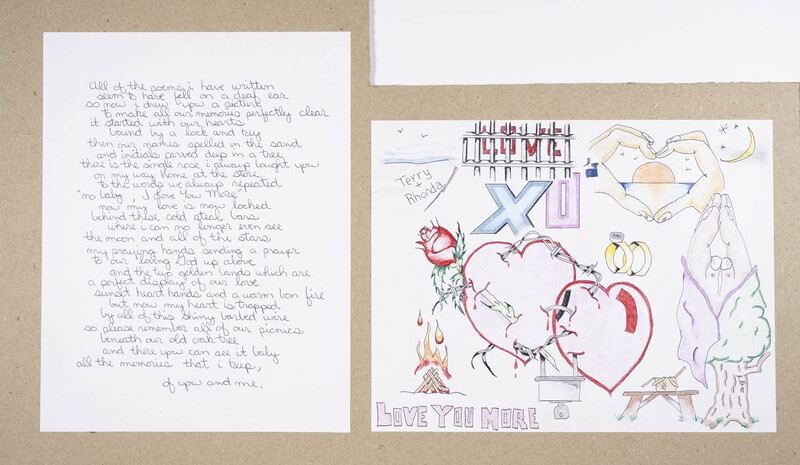 All of the poems i have written
seem to have fell on a deaf ear
so now i drew you a picture
to make all our memories perfectly clear
it started with our hearts
bound by a lock and key
then our names spelled in the sand
and initials carved deep in a tree
there is the single rose i always bought you
on my way home at the store
to the words we always repeated
"no baby, I Love You More"
now my love is now locked
behind these cold steal bars
where i can no longer even see
the moon and all of the stars
my praying hands sending a prayer
to our loving God up above
and the two golden bands which are
a perfect display of our love
sunset heart hands and a warm bon fire
but now my heart is trapped
by all of this shiny barbed wire
so please remember all of our picnics
beneath our old oak tree
and there you can see it baby
all the memories that i keep,
of you and me.
LOVE
Terry
+
Rhonda
XO
LOVE YOU MORE